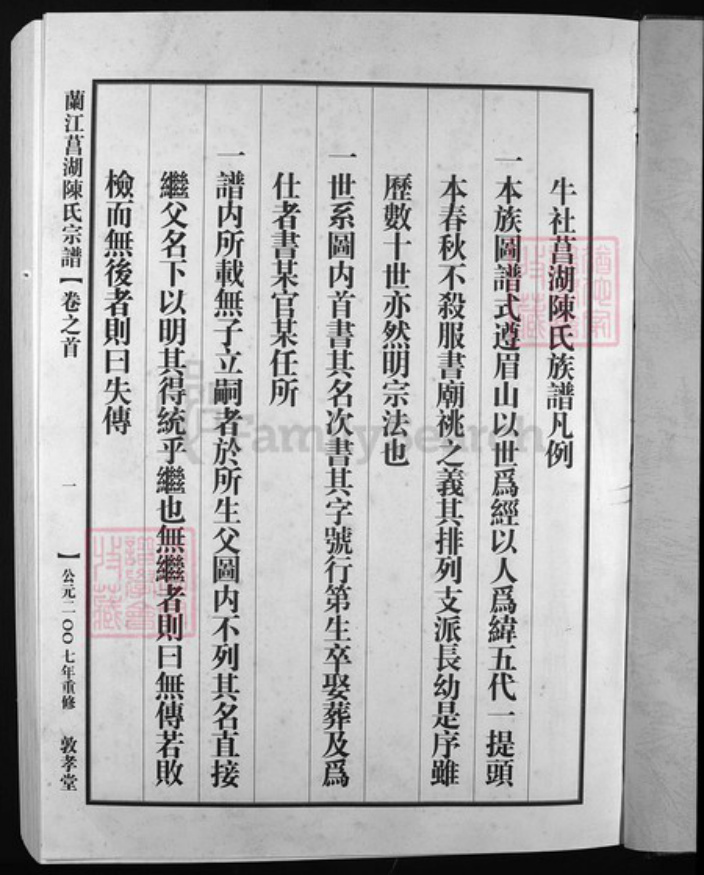 牛社菖湖陳氏族譜凡例
一本族圖譜式遵眉山以世爲經以人爲緯五代一提頭
本春秋不殺服書廟祧之義其排列支派長幼是序雖
歷數十世亦然明宗法也
一世系圖內首書其名次書其字號行第生卒娶葬及爲
仕者書某官某任所
一譜内所載無子立嗣者於所生父圖内不列其名直接
繼父名下以明其得統乎繼也無繼者則曰無傳若敗
檢而無後者則曰失傳
蘭江菖湖陳氏宗譜【卷之首 一 】公元二〇〇七年重修 敦孝堂
FamilySearch